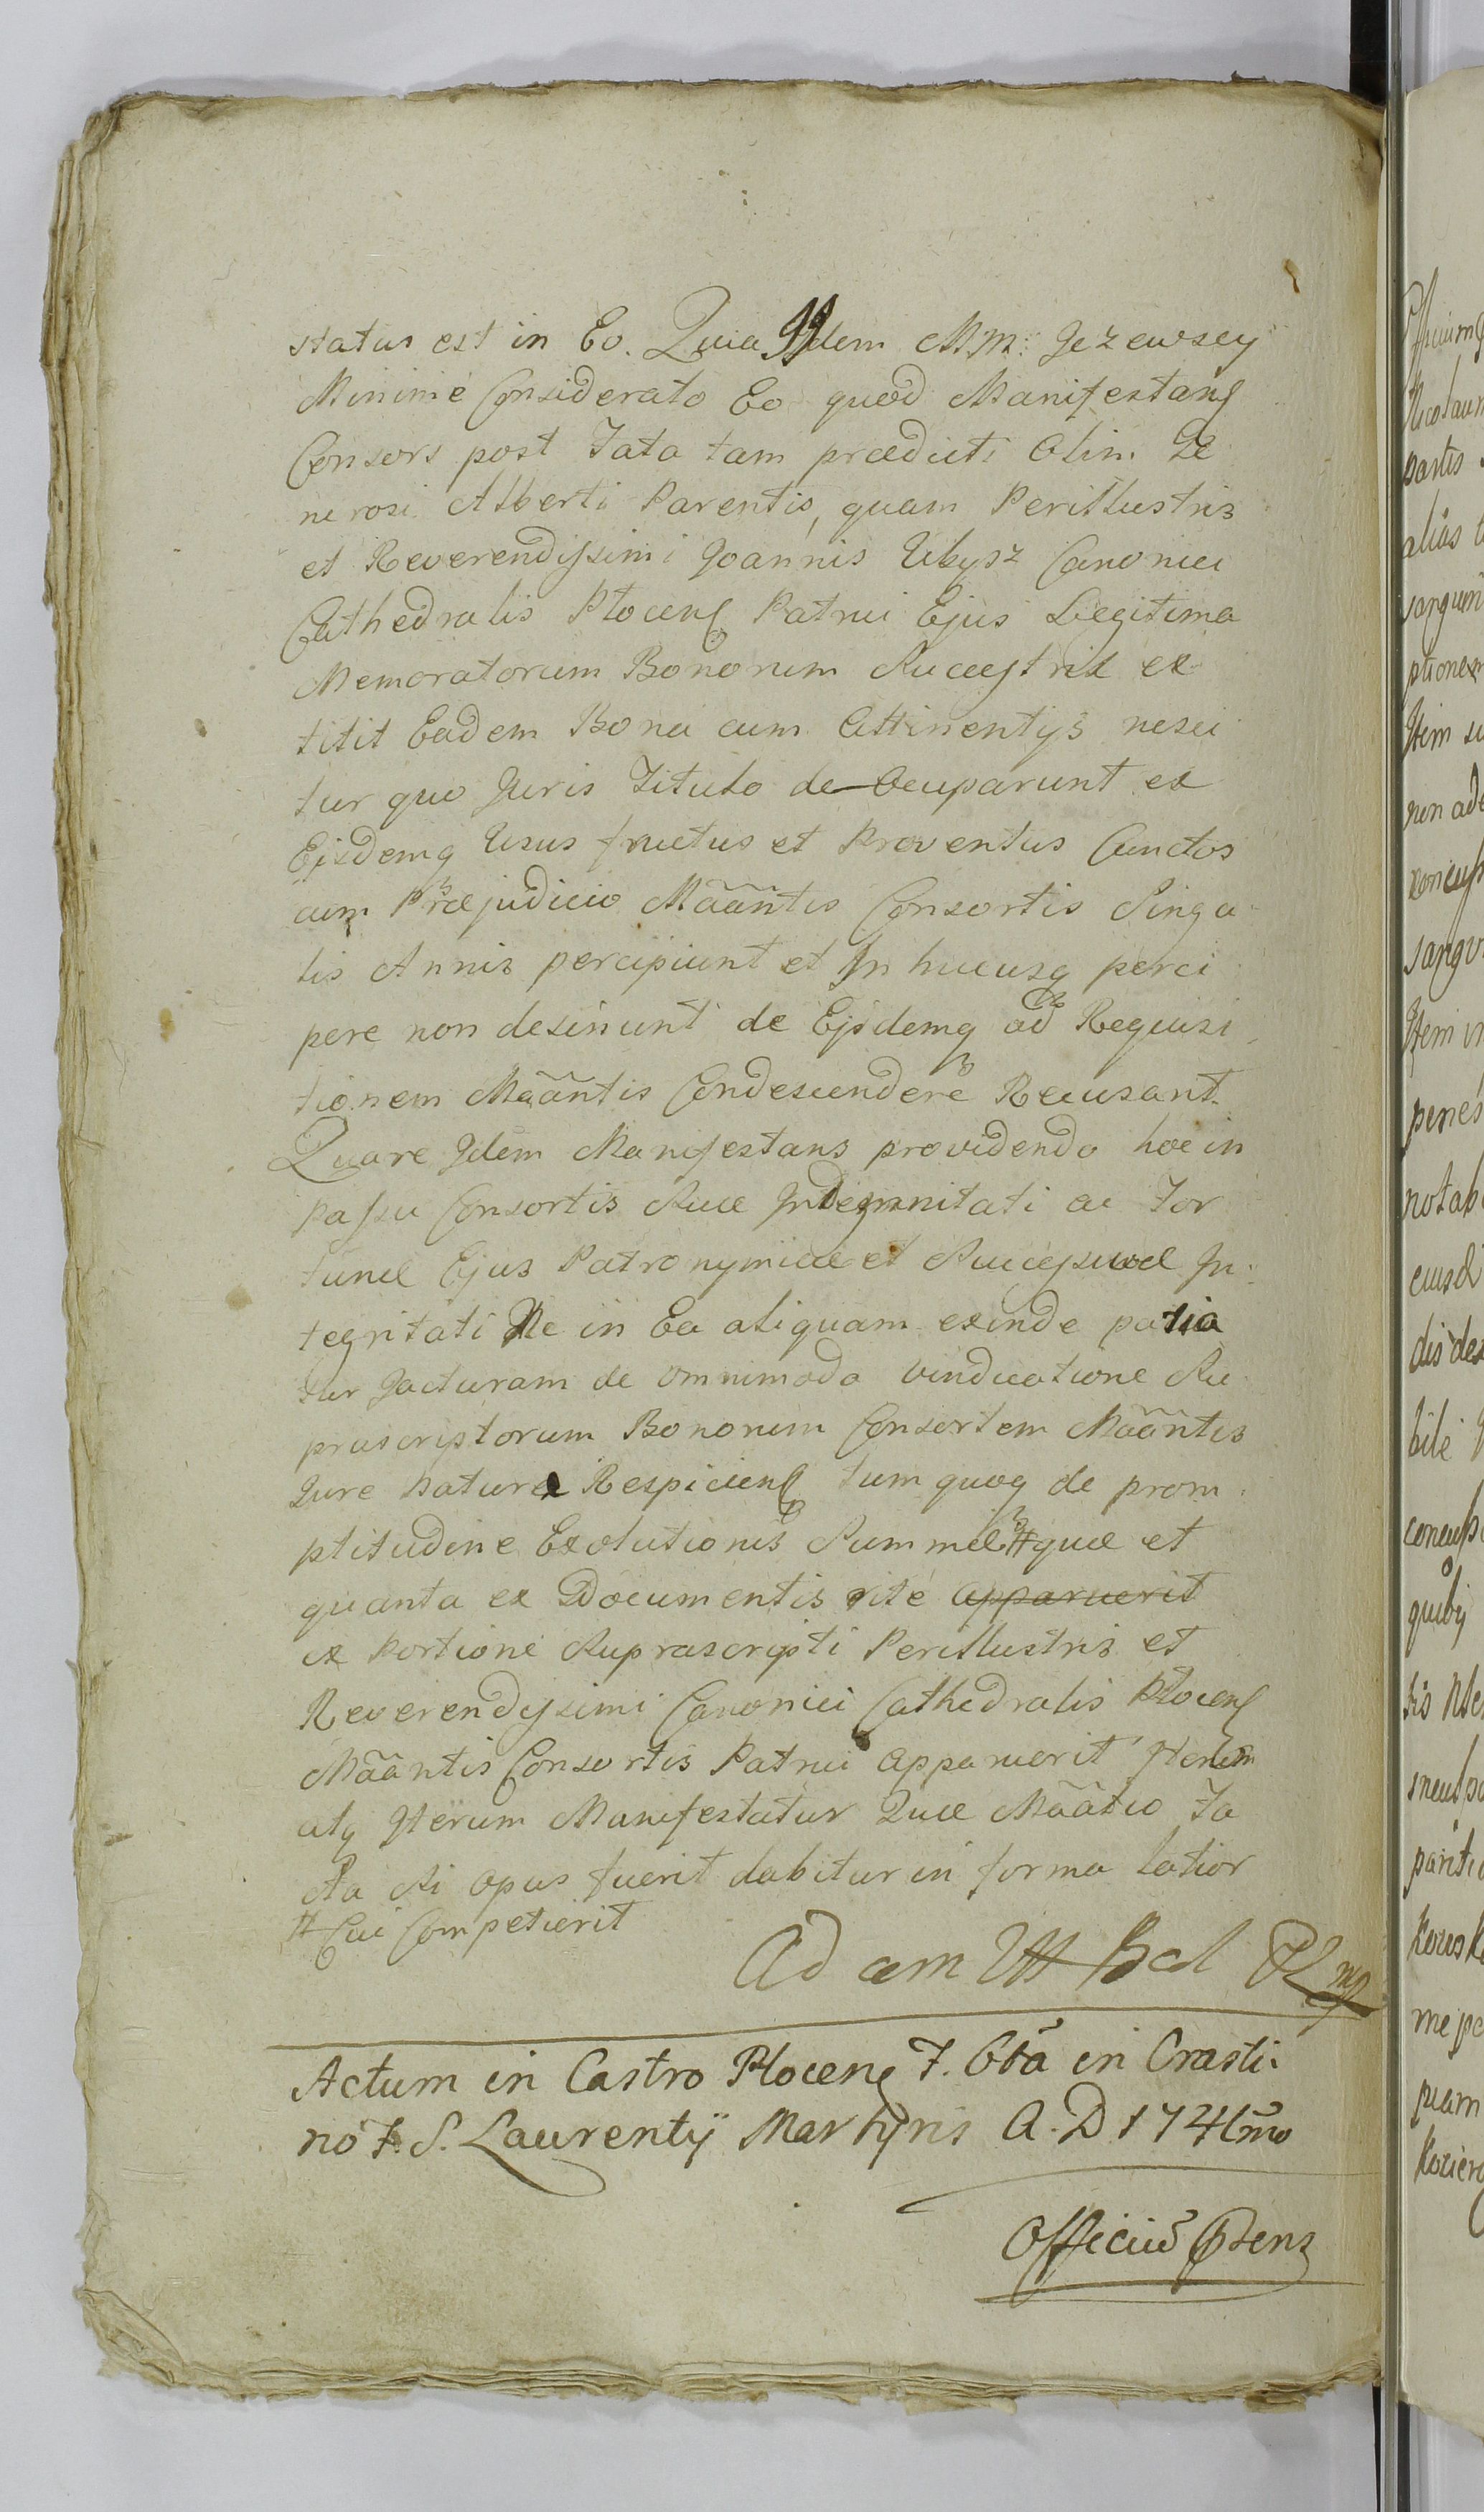 status est in Eo. Quia IIdem MM: Jezewscy
Minime Considerato Eo quod Manifestantis
Consors post Fata tam prædicti Olim Ge
nerosi Alberti Parentis, quam Perillustris
et Reverendissimi Joannis Ubysz Canonici
Cathedralis Plocens Patrui Ejus Legitima
Memoratorum Bonorum Successtrix ex
titit Eadem Bona cum Attinentijs nesci
tur quo Juris Titulo de Occuparunt ex
Eisdemq Usus fructus et Proventus Cunctos
cum Præjudicio Mããntis Consortis Singu
lis Annis percipiunt et In hucusq perci
pere non desinunt de Eisdemq ad Requisi
tionem Mããntis Condescendere Recusant.
Quare Idem Manifestans providendo hoc in
passu Consortis Suæ Indemnitati ac For
tunæ Ejus Patronymicæ et Successivæ In:
tegritati Ne in Ea aliquam exinde patia
tur Jacturam de omnimoda vindicatione Su
prascriptorum Bonorum Consortem Mããntis
Jure Naturæ Respiciens tum quoq de prom
ptitudine Exolutionis Summæ # quæ et
quanta ex Documentis rite apparuerit
ex Portione Suprascripti Perillustris et
Reverendissimi Canonici Cathedralis Plocens
Mããntis Consortis Patrui apparuerit Iterum
atq Iterum Manifestatur Quæ Mããtio Fa
cta Si opus fuerit dabitur in forma latior
# Cui Competierit
Actum in Castro Plocens F. 6ta in Crasti:
no F. S. Laurentÿ Martyris A. D 1741mo
Officiũ Psens